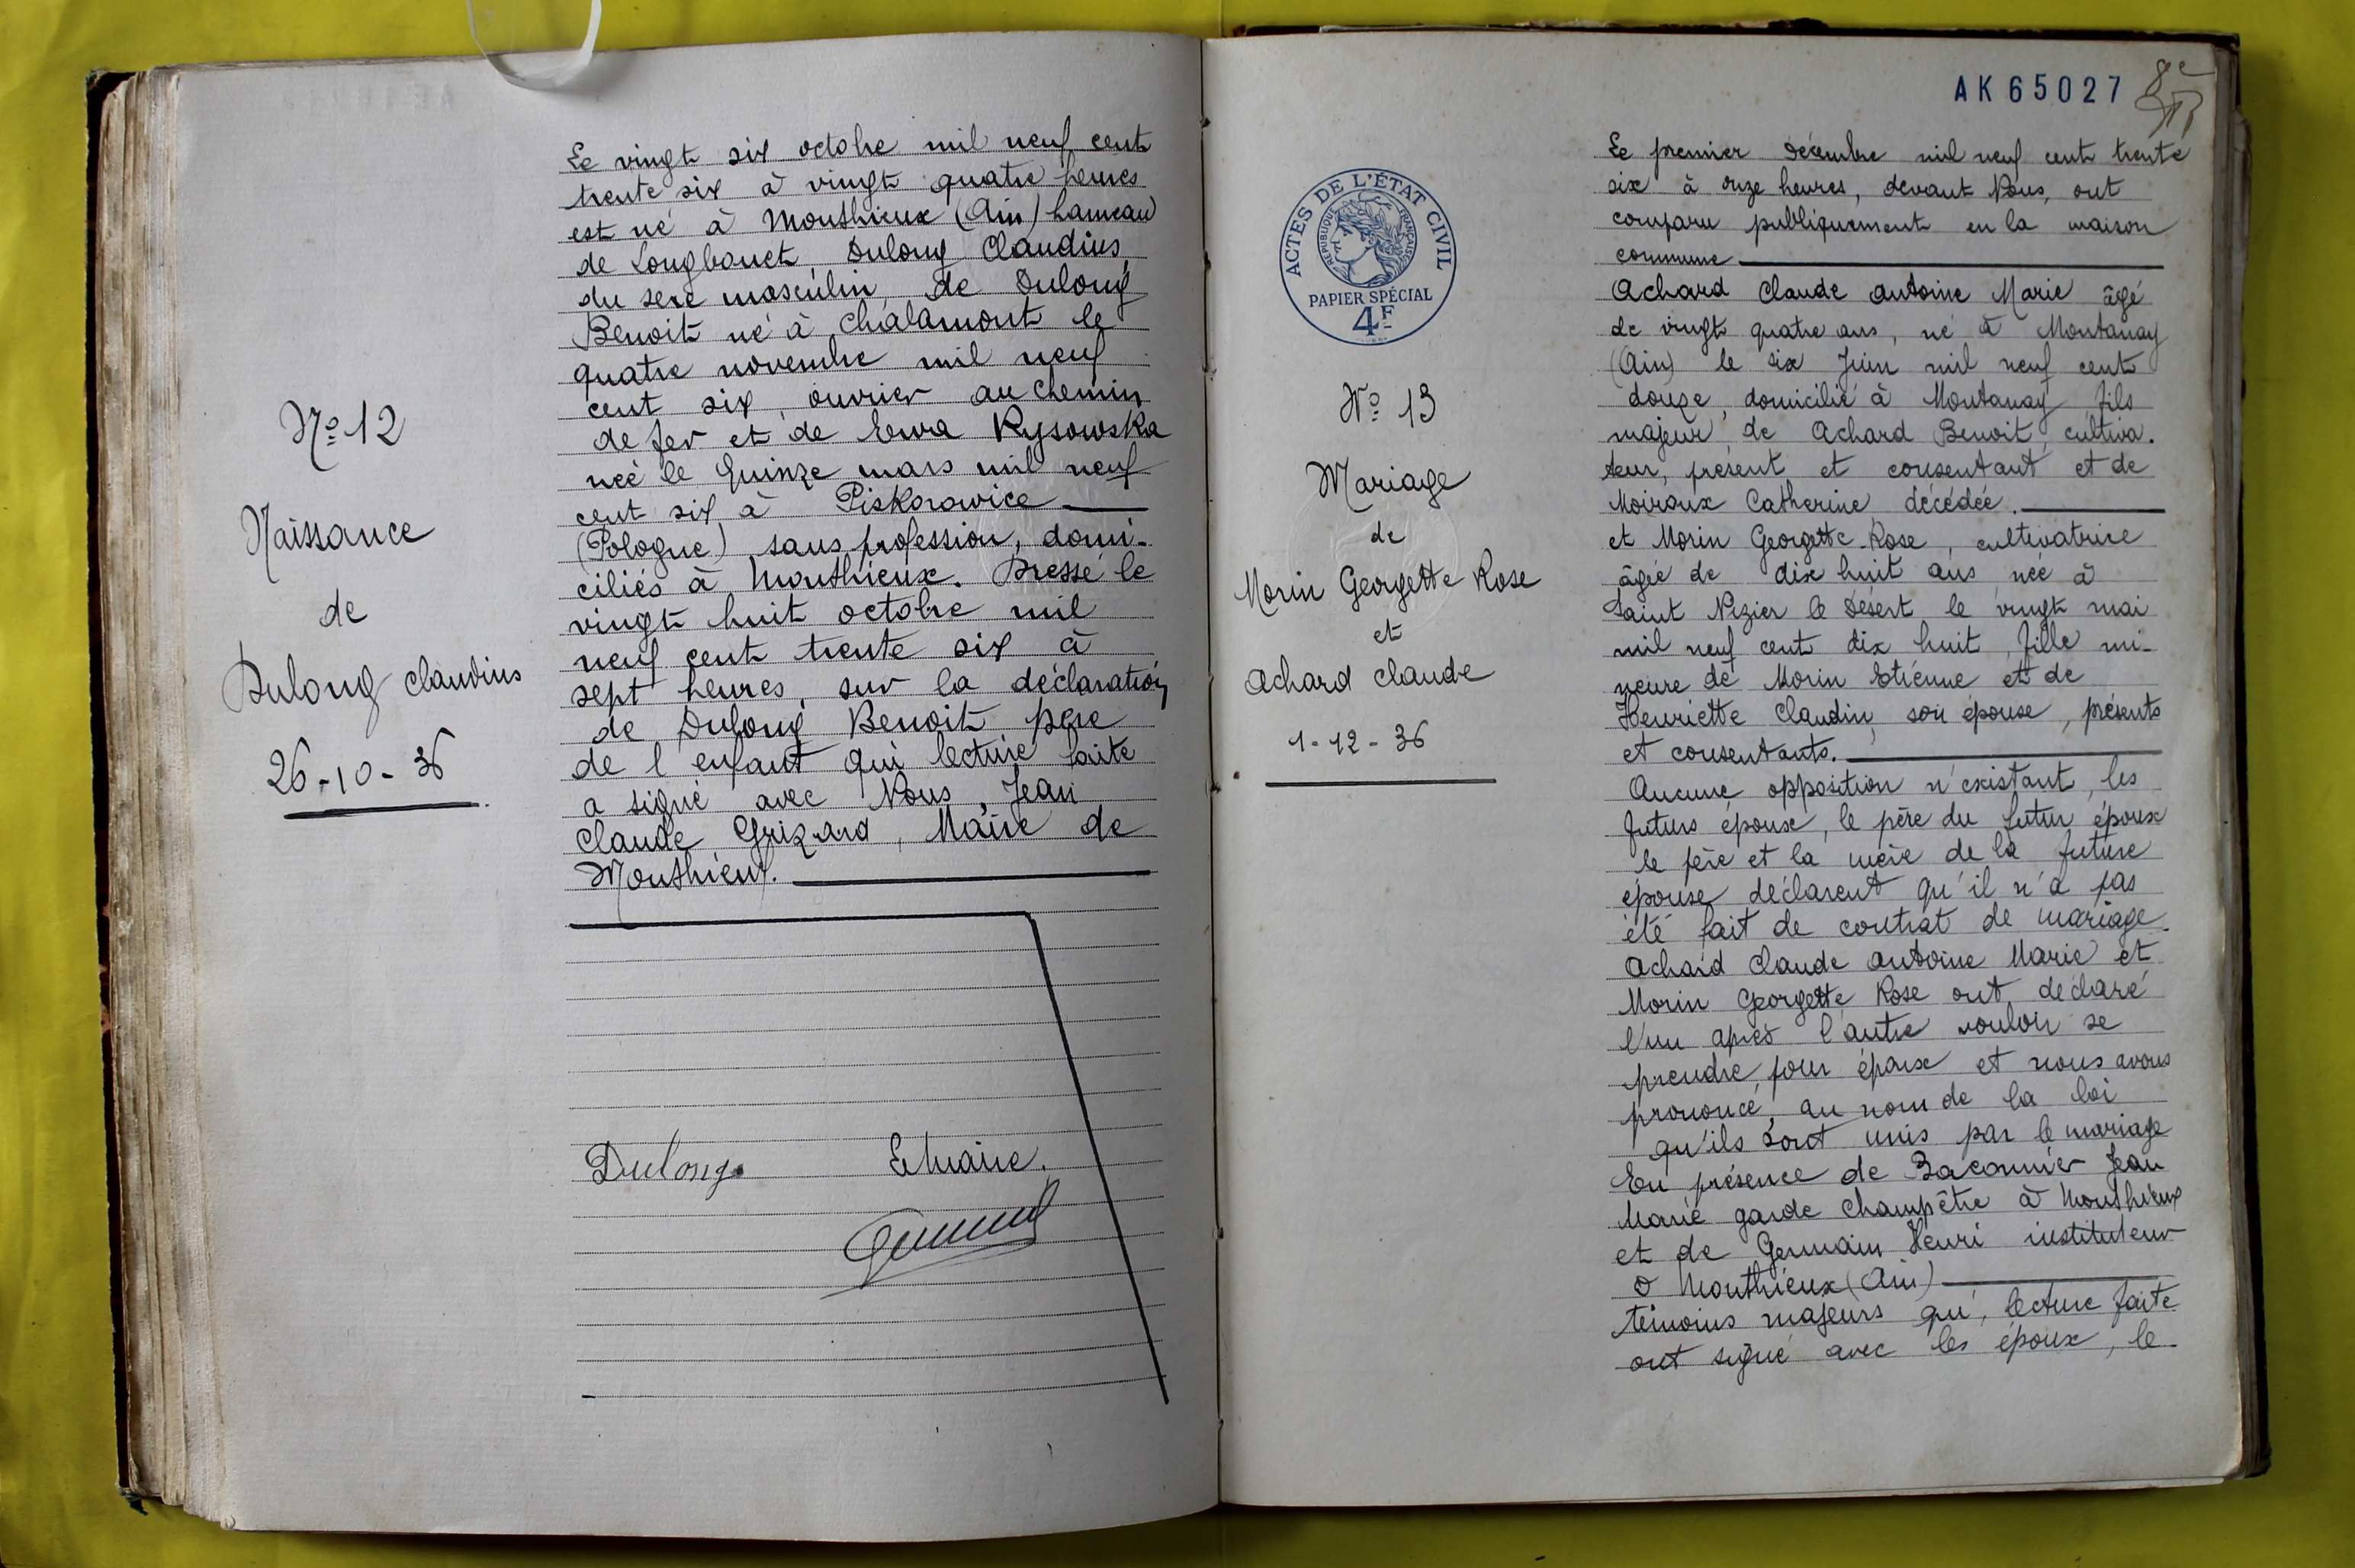 Le vingt six octobre mil neuf cent
trente six à vingt quatre heures
est né à Monthieux (Ain) hameau
de Longbanet Dulong Claudius,
du sexe masculin, de Dulong
Benoit né à Chalamont le
quatre novembre mil neuf
cent six, ouvrier au chemin
de fer et de Ewa Rysowska
née le Quinze mars mil neuf
cent six à Piskorowice
(Pologne) sans profession, domi-
ciliés à Monthieux. Dressé le
vingt huit octobre mil
neuf cent trente six à
sept heures, sur la déclaration
de Dulong Benoit père
de l'enfant qui lecture faite
a signé avec Nous, Jean
Claude Grizard, Maire de
Monthieux.
No 12
Naissance
de
Dulong Claudius
26-10-36
Dulong.
Le Maire.
AK 65027
8e
ACTES DE L'ÉTAT CIVIL
RÉPUBLIQUE FRANÇAISE
PAPIER SPÉCIAL
4F
No 13
Mariage
de
Morin Georgette Rose
et
Achard Claude
1-12-36
Le premier Décembre mil neuf cent trente
six à onze heures, devant Nous, ont
comparu publiquement en la maison
commune
Achard Claude Antoine Marie âgé
de vingt quatre ans, né à Montanay
(Ain) le six Juin mil neuf cent
douze, domicilié à Montanay fils
majeur de Achard Benoit, cultiva-
teur, présent et consentant et de
Moiroux Catherine décédée.
et Morin Georgette Rose, cultivatrice
âgée de dix huit ans née à
Saint Nizier le Désert le vingt mai
mil neuf cent dix huit, fille mi-
neure de Morin Etienne et de
Henriette Claudin, son épouse, présents
et consentants.
Aucune opposition n'existant, les
futurs époux, le père du futur époux
le père et la mère de la future
épouse déclarent qu'il n'a pas
été fait de contrat de mariage.
Achard Claude Antoine Marie et
Morin Georgette Rose ont déclaré
l'un après l'autre vouloir se
prendre pour époux et nous avons
prononcé, au nom de la loi
qu'ils sont unis par le mariage
En présence de Baconnier Jean
Marie garde champêtre à Monthieux
et de Germain Henri instituteur
à Monthieux (Ain)
témoins majeurs qui, lecture faite
ont signé avec les époux, le